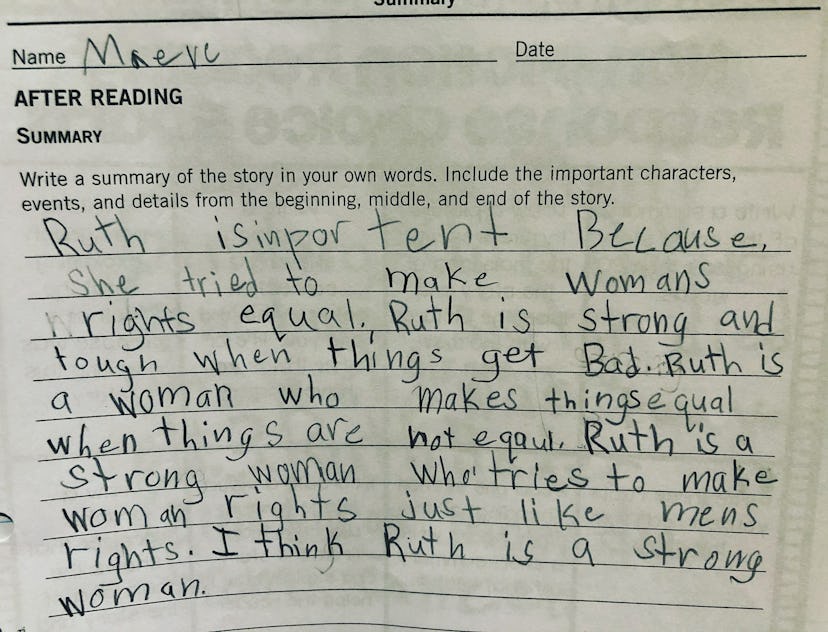 Summary
Name Maeve
Date
AFTER READING
SUMMARY
Write a summary of the story in your own words. Include the important characters,
events, and details from the beginning, middle, and end of the story.
Ruth isinpor tent Because,
She tried to make womans
rights equal. Ruth is strong and
tough when things get Bad. Ruth is
a woman who makes things equal
when things are not eqaul. Ruth is a
strong woman who tries to make
woman rights just like mens
rights. I think Ruth is a strong
woman.